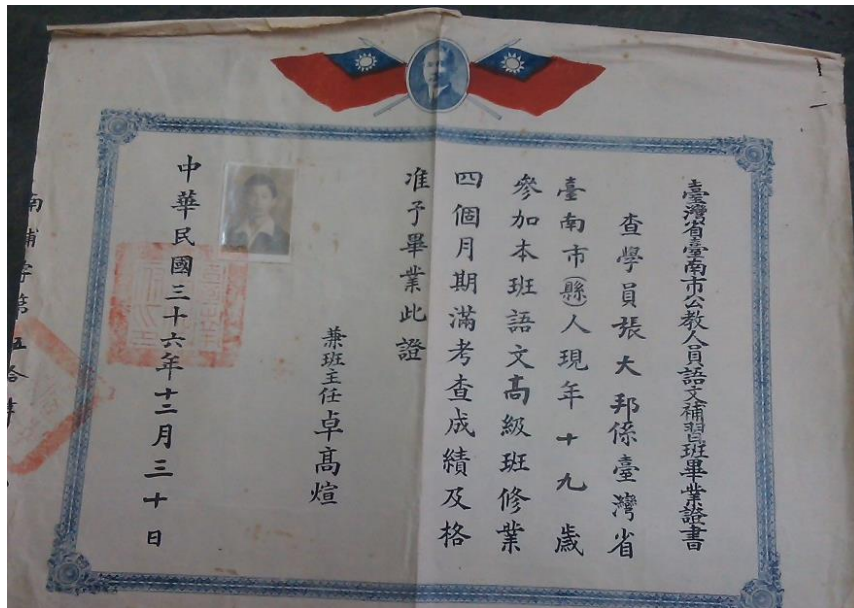 臺灣省臺南市公教人員語文補習班畢業證書
查學員張大邦係臺灣省
臺南市(縣)人現年十九歲
參加本班語文高級班修業
四個月期滿考查成績及格
准予畢業此證
兼班主任卓高煊
中華民國三十六年十二月三十日
南補字第伍拾